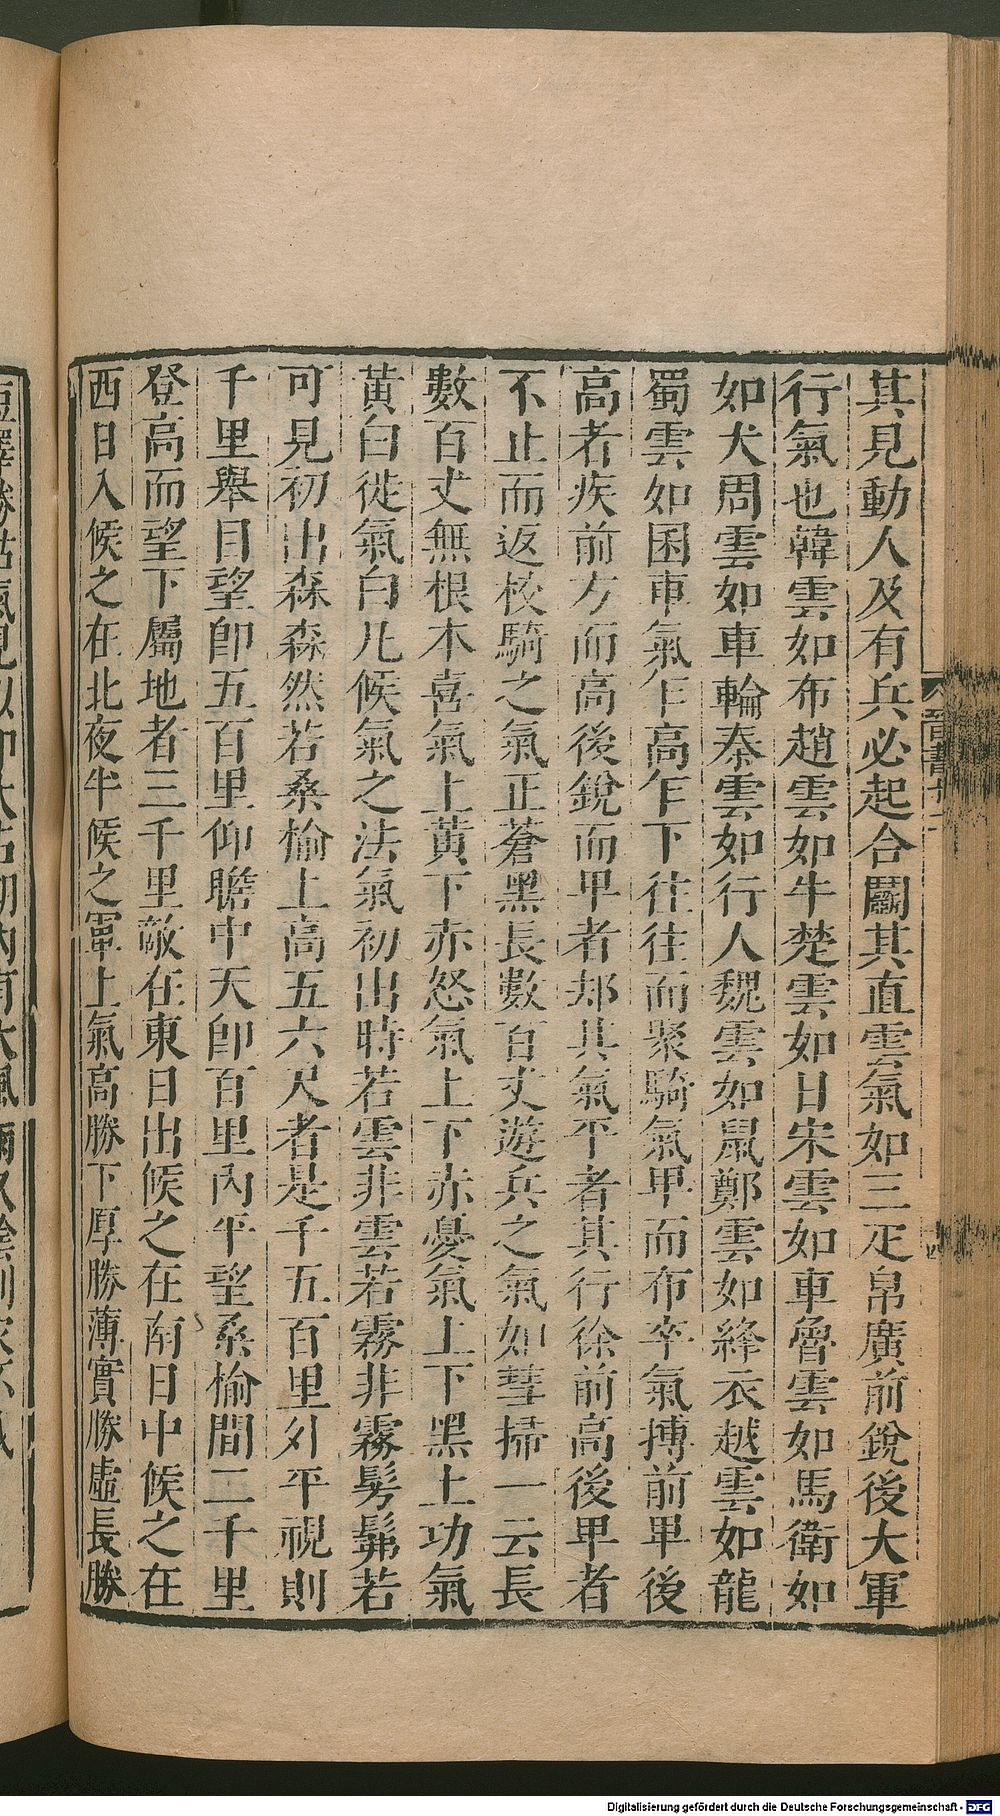 其見動人及有兵必起合鬬其直雲氣如三疋帛廣前銳後大軍
行氣也韓雲如布趙雲如牛楚雲如日宋雲如車魯雲如馬衛如
如犬周雲如車輪秦雲如行人魏雲如鼠鄭雲如絳衣越雲如龍
蜀雲如囷車氣乍高乍下往往而聚騎氣卑而布卒氣摶前卑後
高者疾前方而高後銳而卑者却其氣平者其行徐前高後卑者
不止而返校騎之氣正蒼黑長數百丈遊兵之氣如彗掃一云長
數百丈無根本喜氣上黃下赤怒氣上下赤憂氣上下黑土功氣
黃白徙氣白凡候氣之法氣初出時若雲非雲若霧非霧髣髴若
可見初出森森然若桑榆上高五六尺者是千五百里外平視則
千里舉目望即五百里仰瞻中天即百里內平望桑榆間二千里
登高而望下屬地者三千里敵在東日出候之在南日中候之在
西日入候之在北夜半候之軍上氣高勝下厚勝薄實勝虛長勝
晉書
Digitalisierung gefördert durch die Deutsche Forschungsgemeinschaft - DFG